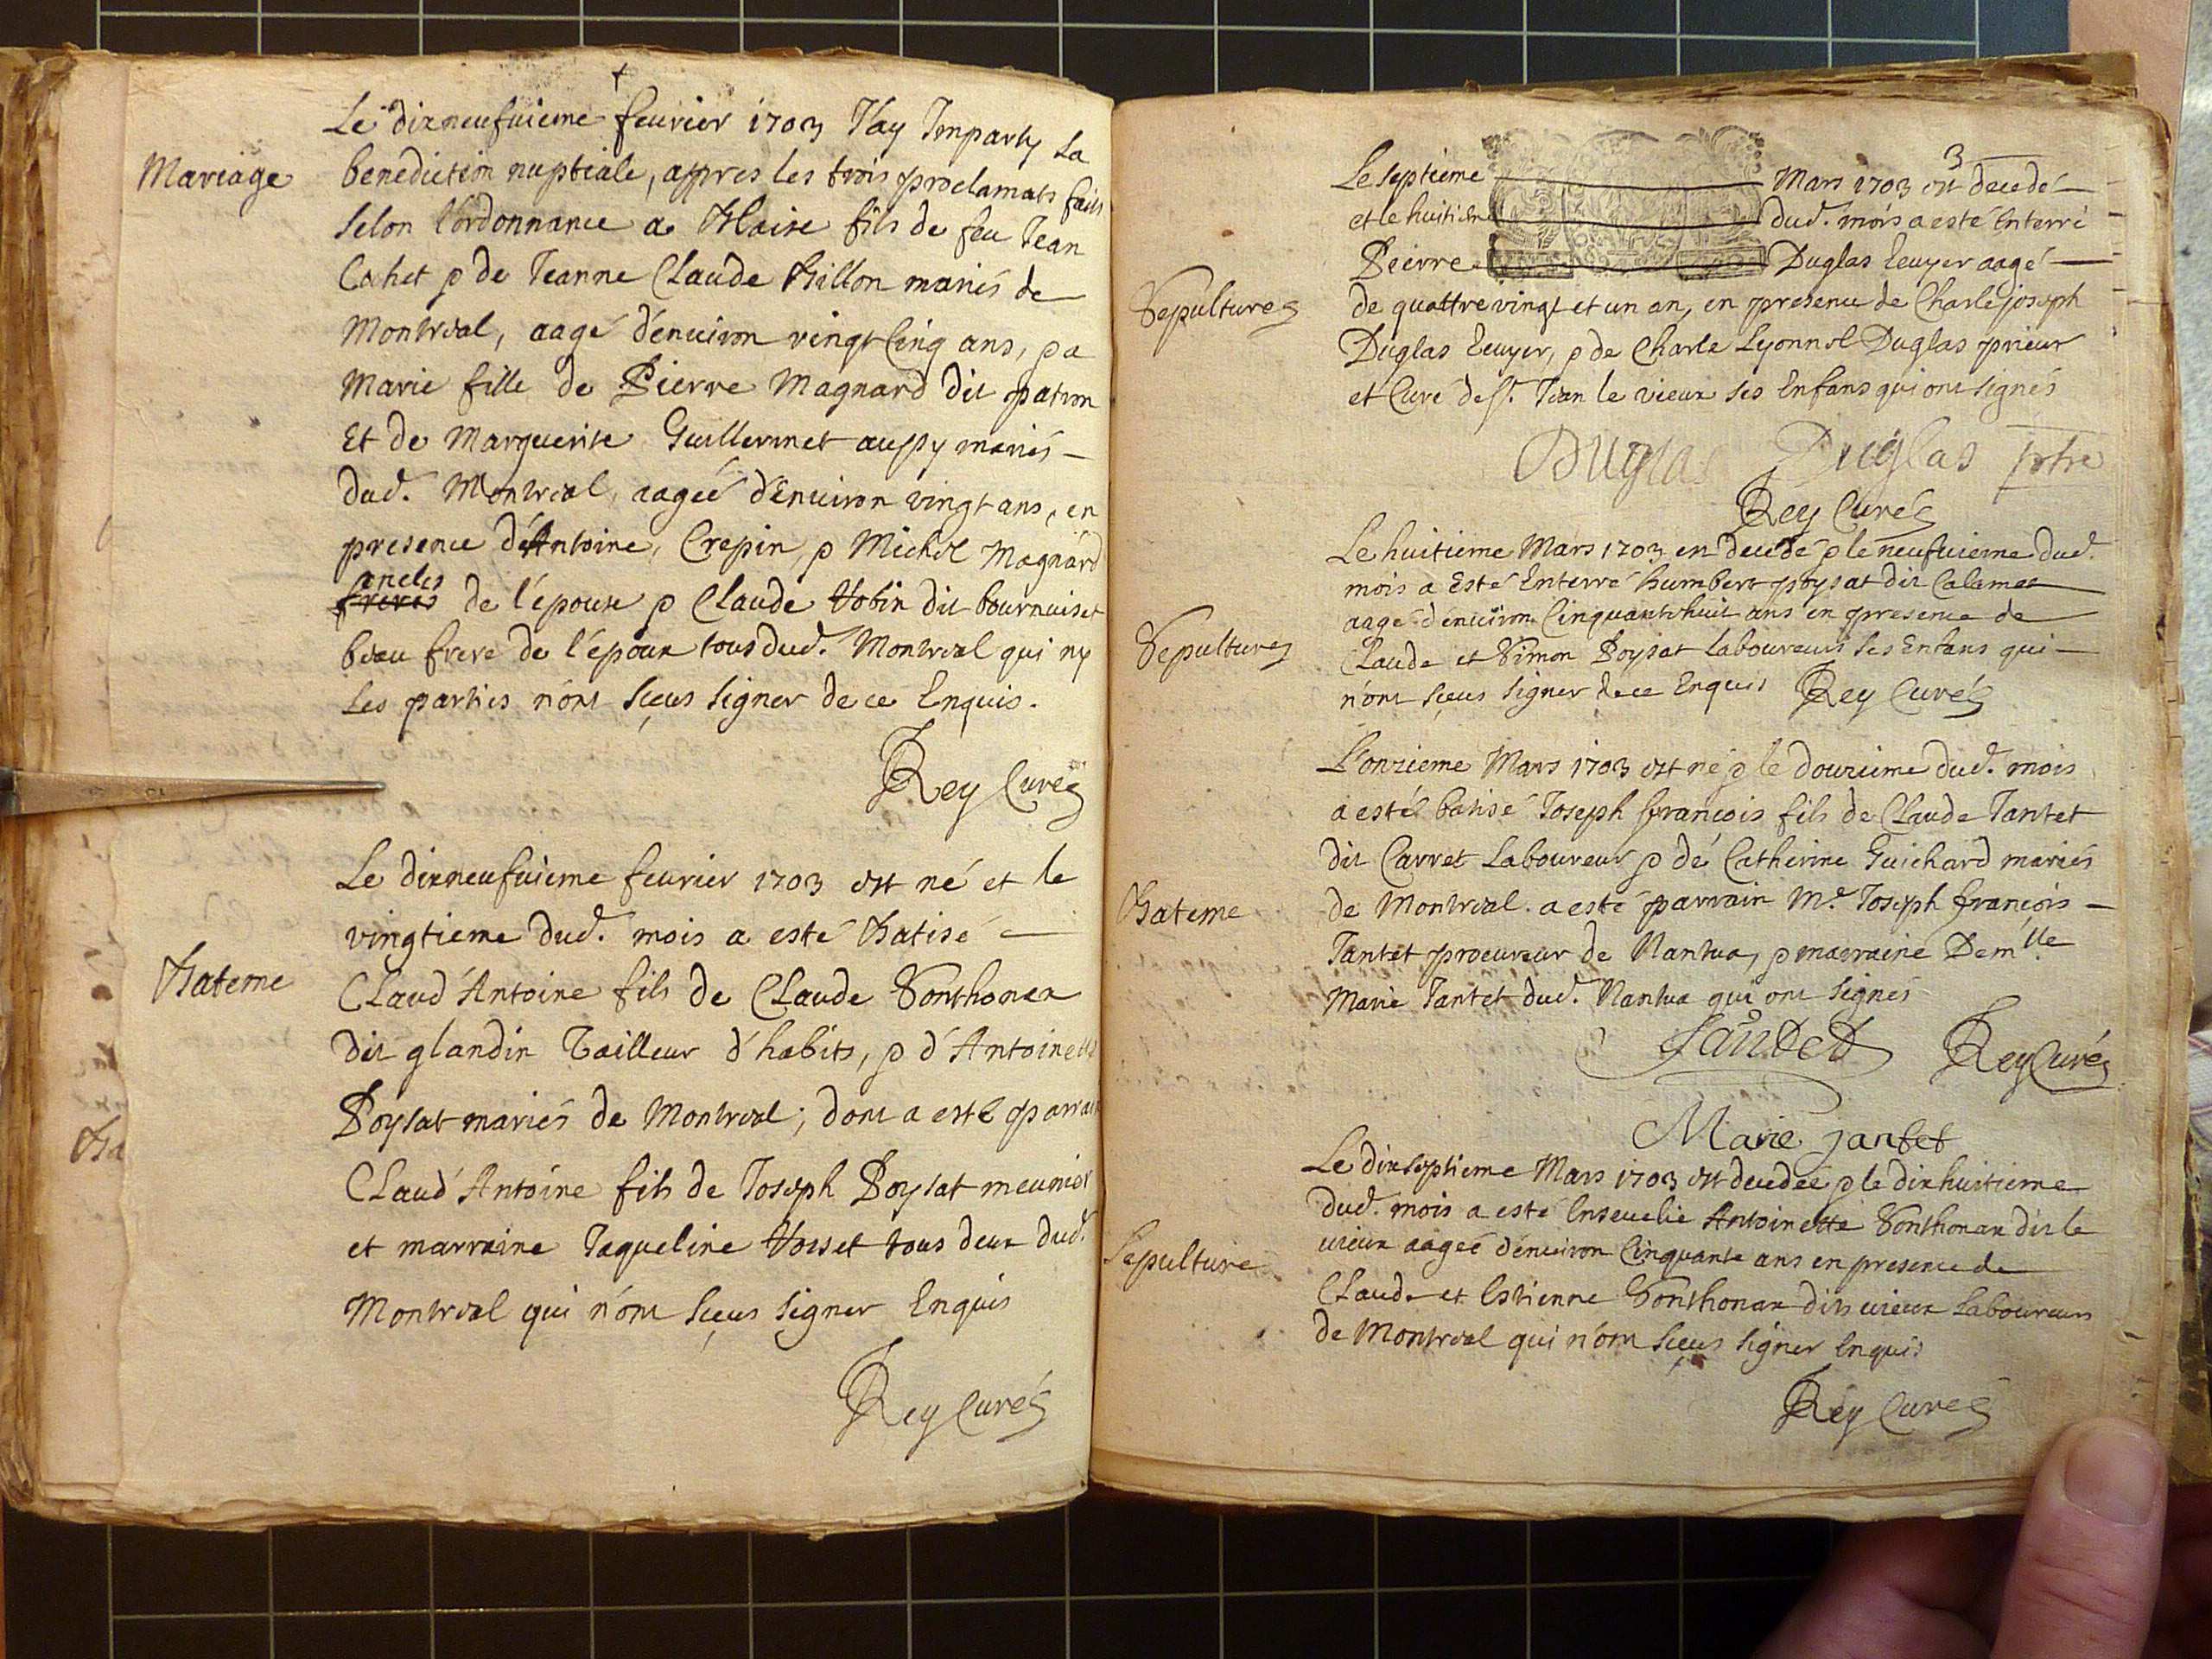 Mariage
Le dixneufuieme feurier 1703 J'ay Imparty La
benediction nuptiale, appres les trois proclamats faits
selon l'ordonnance a Blaise fils de feu Jean
Cohet & de Jeanne Claude Billon mariés de
Montreal, aagé d'enuiron vingt Cinq ans, & a
Marie fille de Pierre Magnard dit patron
Et de Marguerite Guillermet aussy mariés
dud. Montreal, aageé d'enuiron vingt ans, en
presence d'Antoine, Crepin, & Michel Magnard
oncles
freres de l'épouse & Claude Bobin dit bournuiset
beau frere de l'époux tous dud. Montreal qui ny
Les parties n'ont sçeus signer de ce Enquis.
Rey Curé
Bateme
Le dixneufuieme feurier 1703 est né et le
vingtieme dud. mois a esté Batisé
Claud'Antoine fils de Claude Sonthonax
dit glandin Tailleur d'habits, & d'Antoinette
Poysat mariés de Montreal; dont a esté parrain
Claud'Antoine fils de Joseph Poysat meunier
et marraine Jaqueline tous deux dud.
Montreal qui n'ont sçeus signer Enquis
Rey Curé
Ba
3
Sepulture
Le septieme Mars 1703 est decedé
et le huitieme dud. mois a esté Enterré
Pierre Duglas Ecuyer aagé
de quattre vingt et un an, en presence de Charle joseph
Duglas Ecuyer, & de Charle Lyonnel Duglas prieur
et Curé de St. Jean le vieux ses Enfans qui ont signés
Duglas Duglas ptre
Rey Curé
Sepulture
Le huitieme Mars 1703 en decedé & le neufuieme dud.
mois a Esté Enterré humbert poysat dit Calamet
aagé d'enuiron Cinquante huit ans en presence de
Claude et Simon Poysat laboureurs ses Enfans qui
n'ont sçeus signer de ce Enquis Rey Curé
Bateme
L'onzieme Mars 1703 est né & le douzieme dud. mois
a esté batisé Joseph françois fils de Claude Jantet
dit Carret Laboureur & dé Catherine Guichard mariés
de Montreal. a esté parrain Me. Joseph françois
Jantet procureur de Nantua, & marraine Demlle
Marie Jantet dud. Nantua qui ont signés
Jantet Rey Curé
Marie jantet
Sepulture
Le dixseptieme Mars 1703 est decedée & le dixhuitieme
dud. mois a esté Enseuelie Antoinette Sonthonax dit le
vieux aageé d'enuiron Cinquante ans en presence de
Claude et Estienne Sonthonax dits vieux Laboureurs
de Montreal qui n'ont sçeus signer Enquis
Rey Curé